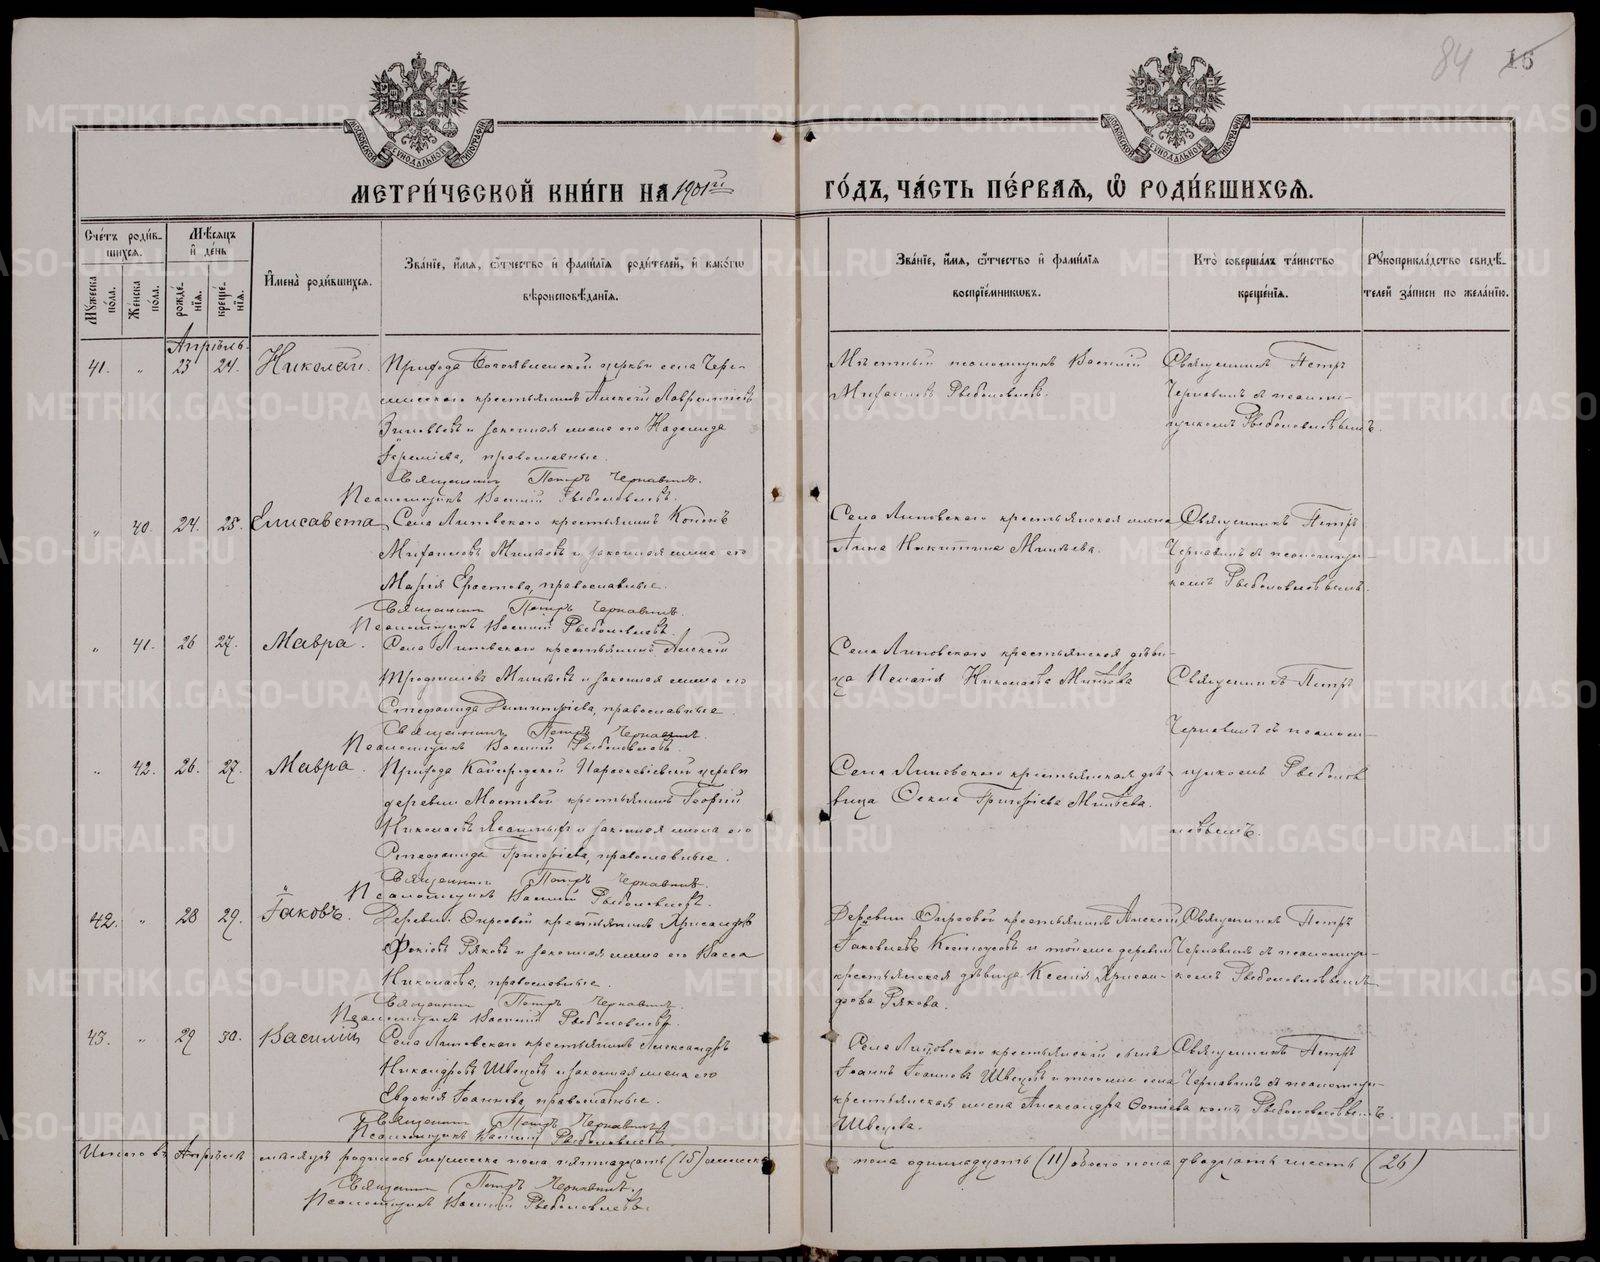 84 15
МЕТРИ́ЧЕСКОЙ КНИ́ГИ НА 1901й ГО́ДЪ, ЧА́СТЬ ПЕ́РВАЯ, Ѿ РОДИ́ВШИХСЯ.
Сче́тъ роди́в-
шихся.
Мѣ́сяцъ
и҆ де́нь
Мꙋ́жеска
по́ла.
Же́нска
по́ла.
рожде́-
нїя.
креще́-
нїя.
И҆мена̀ роди́вшихся.
Зва́нїе, и҆́мя, ѻ҆́тчество и҆ фами́лїя роди́телей, и҆ како́гѡ
вѣроисповѣ́данїя.
Зва́нїе, и҆́мя, ѻ҆́тчество и҆ фами́лїя
воспрїе́мникѡвъ.
Кто̀ соверша́лъ та́инство
креще́нїя.
Рꙋкоприкла́дство свидѣ́-
телей за́писи по жела́нїю.
Апрѣль.
41. „ 23 24. Николай.
Прихода Богоявленской церкви села Чере-
мисского крестьянинъ Алексій Лаврентіевъ
Зиновьевъ и законная жена его Надежда
Іереміева, православные.
Священникъ Петръ Чернавинъ.
Псаломщикъ Василій Рыболовлевъ.
Мѣстный псаломщикъ Василій
Михаиловъ Рыболовлевъ.
Священникъ Петръ
Чернавинъ съ псалом-
щикомъ Рыболовлевымъ.
„ 40. 24. 25. Елисавета
Села Липовского крестьянинъ Кононъ
Михаиловъ Миняевъ и законная жена его
Марія Ерастова, православные.
Священникъ Петръ Чернавинъ.
Псаломщикъ Василій Рыболовлевъ.
Села Липовского крестьянская жена
Анна Никитина Миняева.
Священникъ Петръ
Чернавинъ съ псаломщи-
комъ Рыболовлевымъ.
„ 41. 26 27. Мавра.
Села Липовского крестьянинъ Алексій
Трофимовъ Миняевъ и законная жена его
Стефанида Димитріева, православные.
Священникъ Петръ Чернавинъ.
Псаломщикъ Василій Рыболовлевъ.
Села Липовского крестьянская дѣви-
ца Пелагія Николаева
Священникъ Петръ
Чернавинъ съ псалом-
„ 42. 26. 27. Мавра.
Прихода Параскевіевской церкви
деревни Мостовой крестьянинъ Георгій
Николаевъ и законная жена его
Стефанида Григорьева, православные.
Священникъ Петръ Чернавинъ.
Псаломщикъ Василій Рыболовлевъ.
Села Липовского крестьянская дѣ-
вица Ѳекла Григорьева Миняева.
щикомъ Рыболов
левымъ.
42. „ 28 29. Іаковъ.
Деревни крестьянинъ Хрисанфъ
Фокіевъ Ряковъ и законная жена его Васса
Николаева, православные.
Священникъ Петръ Чернавинъ.
Псаломщикъ Василій Рыболовлевъ.
Деревни крестьянинъ Алексій
Іаковлевъ Костоусовъ и тойже деревни
крестьянская дѣвица Ксенія Хрисан-
фова Рякова.
Священникъ Петръ
Чернавинъ съ псаломщи-
комъ Рыболовлевымъ
43. „ 29 30. Василій
Села Липовского крестьянинъ Александръ
Никандровъ Швецовъ и законная жена его
Евдокія Іоаннова, православные.
Священникъ Петръ Чернавинъ
Псаломщикъ Василій Рыболовлевъ.
Села Липовского крестьянскій сынъ
Іоаннъ Іоанновъ Швецовъ и тогоже села
крестьянская жена Александра
Швецова.
Священникъ Петръ
Чернавинъ съ псаломщи-
комъ Рыболовлевымъ.
Итого въ Апрѣлѣ мѣсяцѣ родилось мужеска пола пятнадцать (15) женска пола одиннадцать (11) обоего пола двадцать шесть (26)
Священникъ Петръ Чернавинъ.
Псаломщикъ Василій Рыболовлевъ.
METRIKI.GASO-URAL.RU